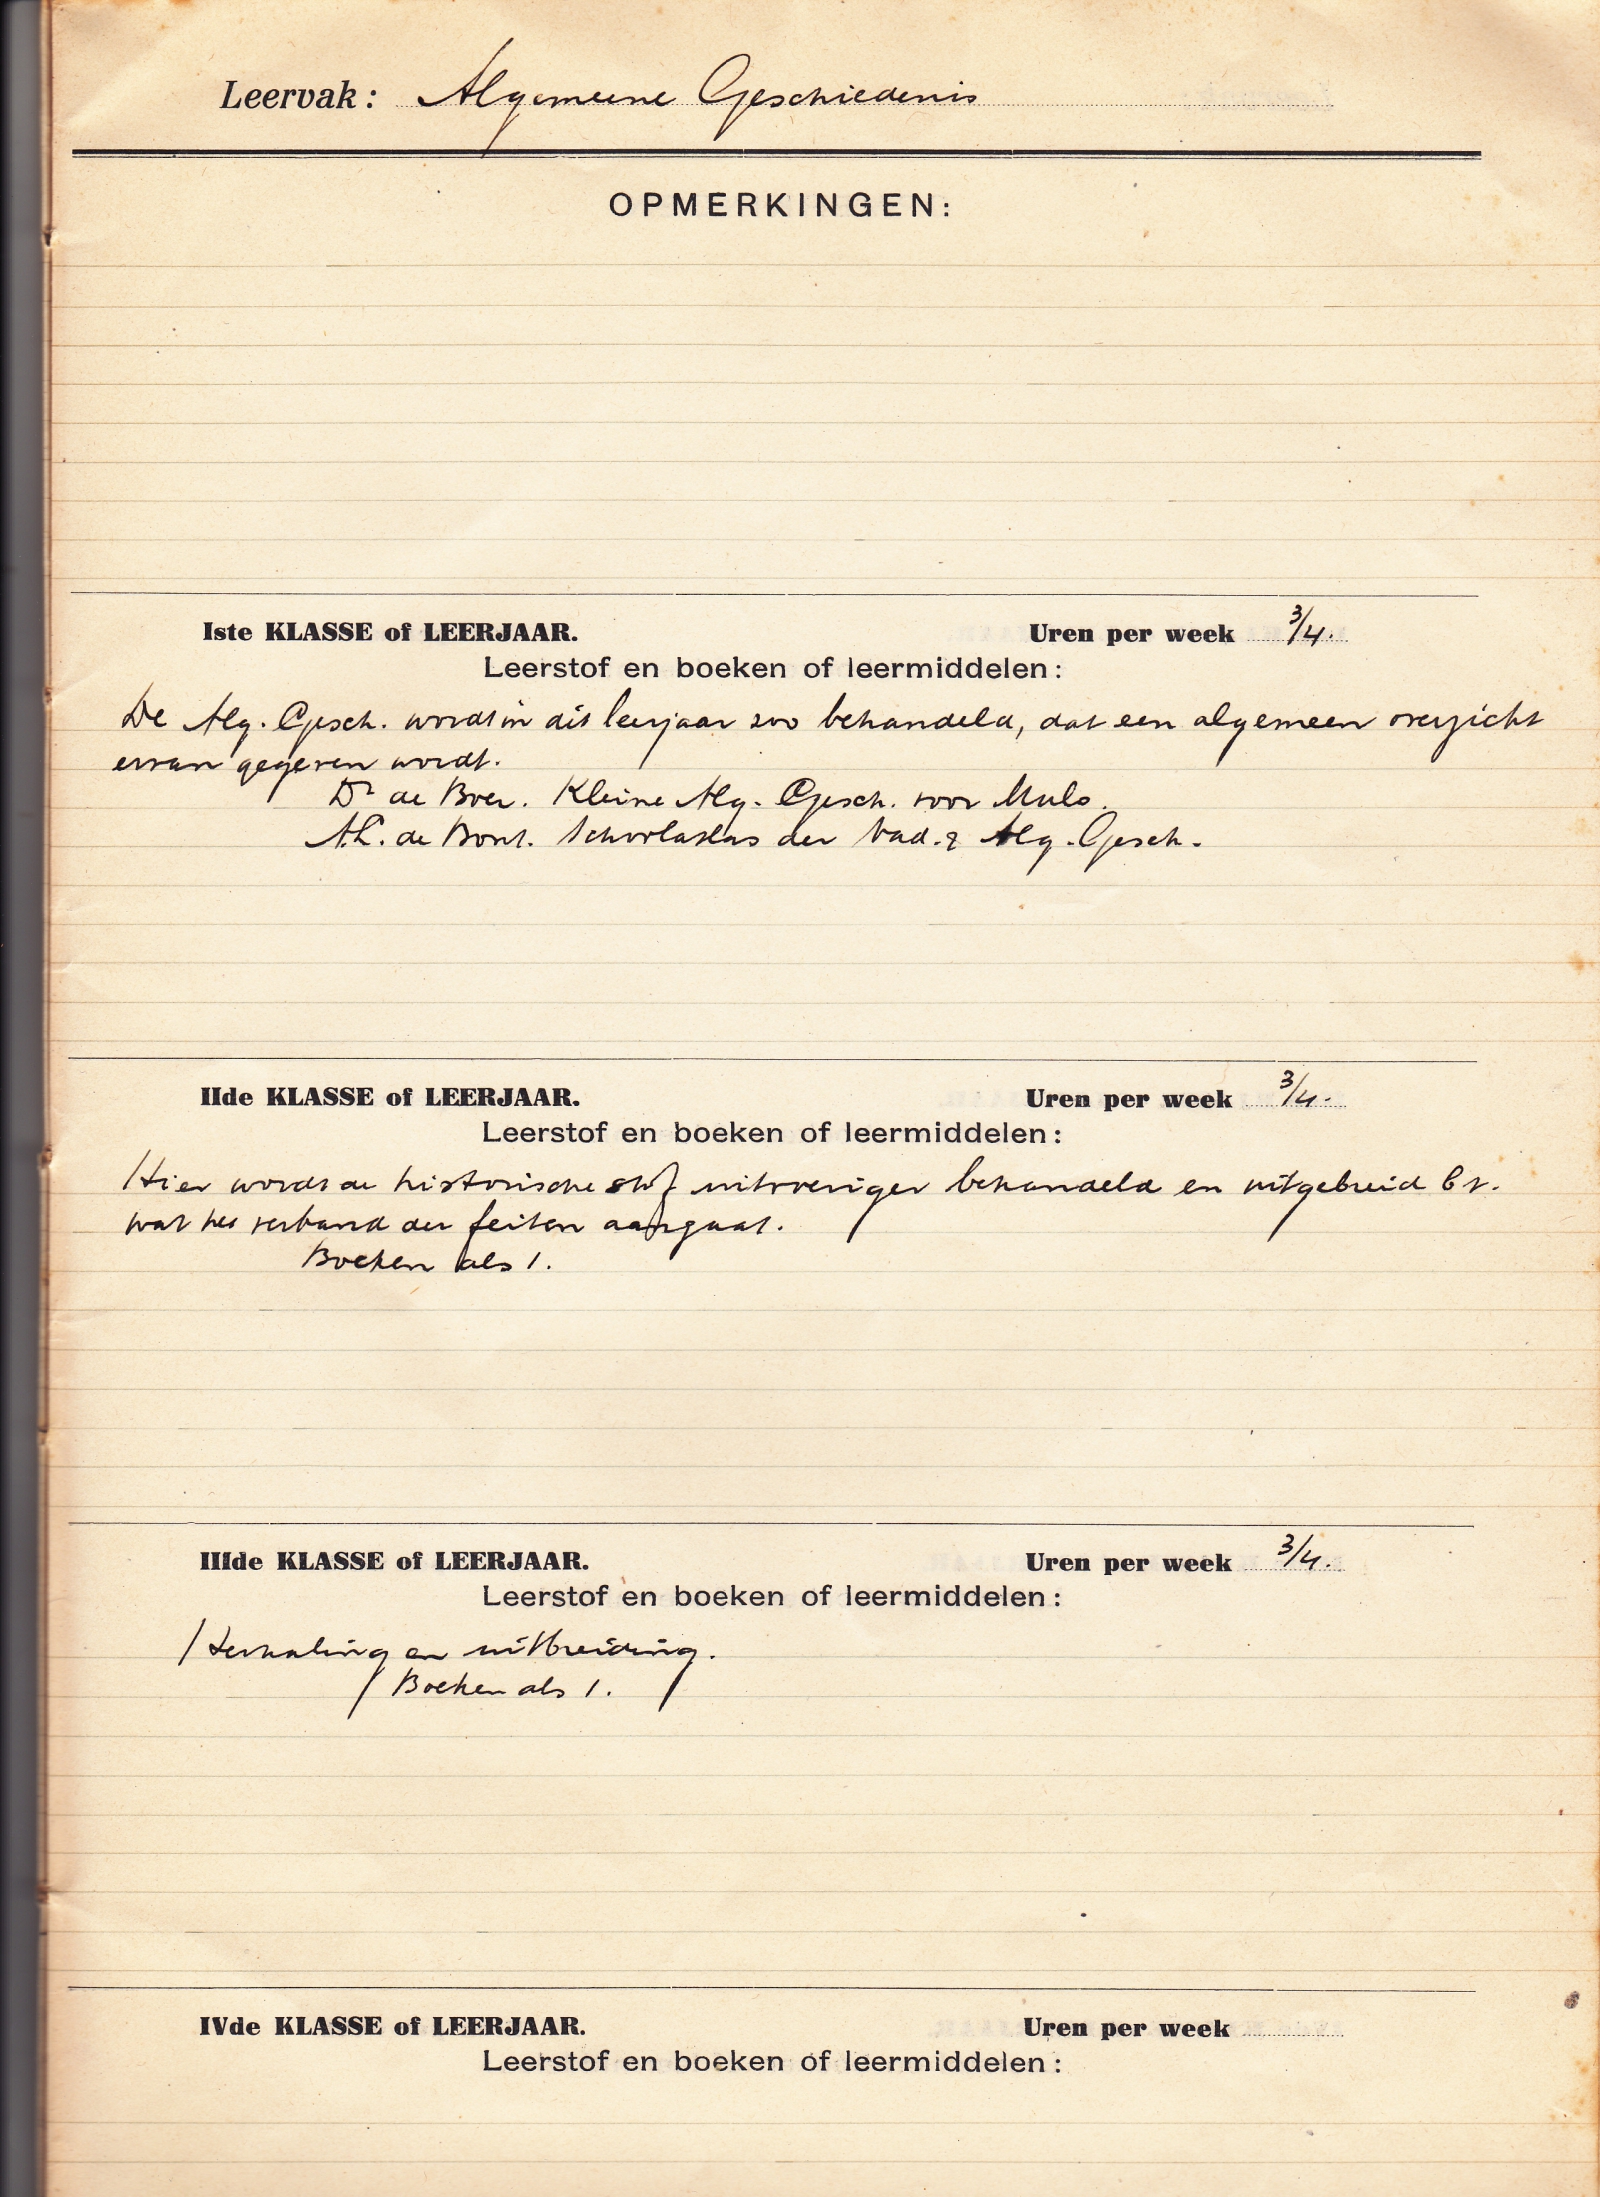 Leervak: Algemeene Geschiedenis
OPMERKINGEN:
Iste KLASSE of LEERJAAR. Uren per week 3/4.
Leerstof en boeken of leermiddelen:
De Alg. Gesch. wordt in dit leerjaar zoo behandeld, dat een algemeen overzicht
ervan gegeven wordt.
Dr de Boer. Kleine Alg. Gesch. voor Mulo.
de Bont. Schoolatlas der Vad. & Alg. Gesch.
IIde KLASSE of LEERJAAR. Uren per week 3/4.
Leerstof en boeken of leermiddelen:
Hier wordt de historische stof uitvoeriger behandeld en uitgebreid
wat het verband der feiten aangaat.
Boeken als 1.
IIIde KLASSE of LEERJAAR. Uren per week 3/4.
Leerstof en boeken of leermiddelen:
Herhaling en uitbreiding.
Boeken als 1.
IVde KLASSE of LEERJAAR. Uren per week
Leerstof en boeken of leermiddelen: